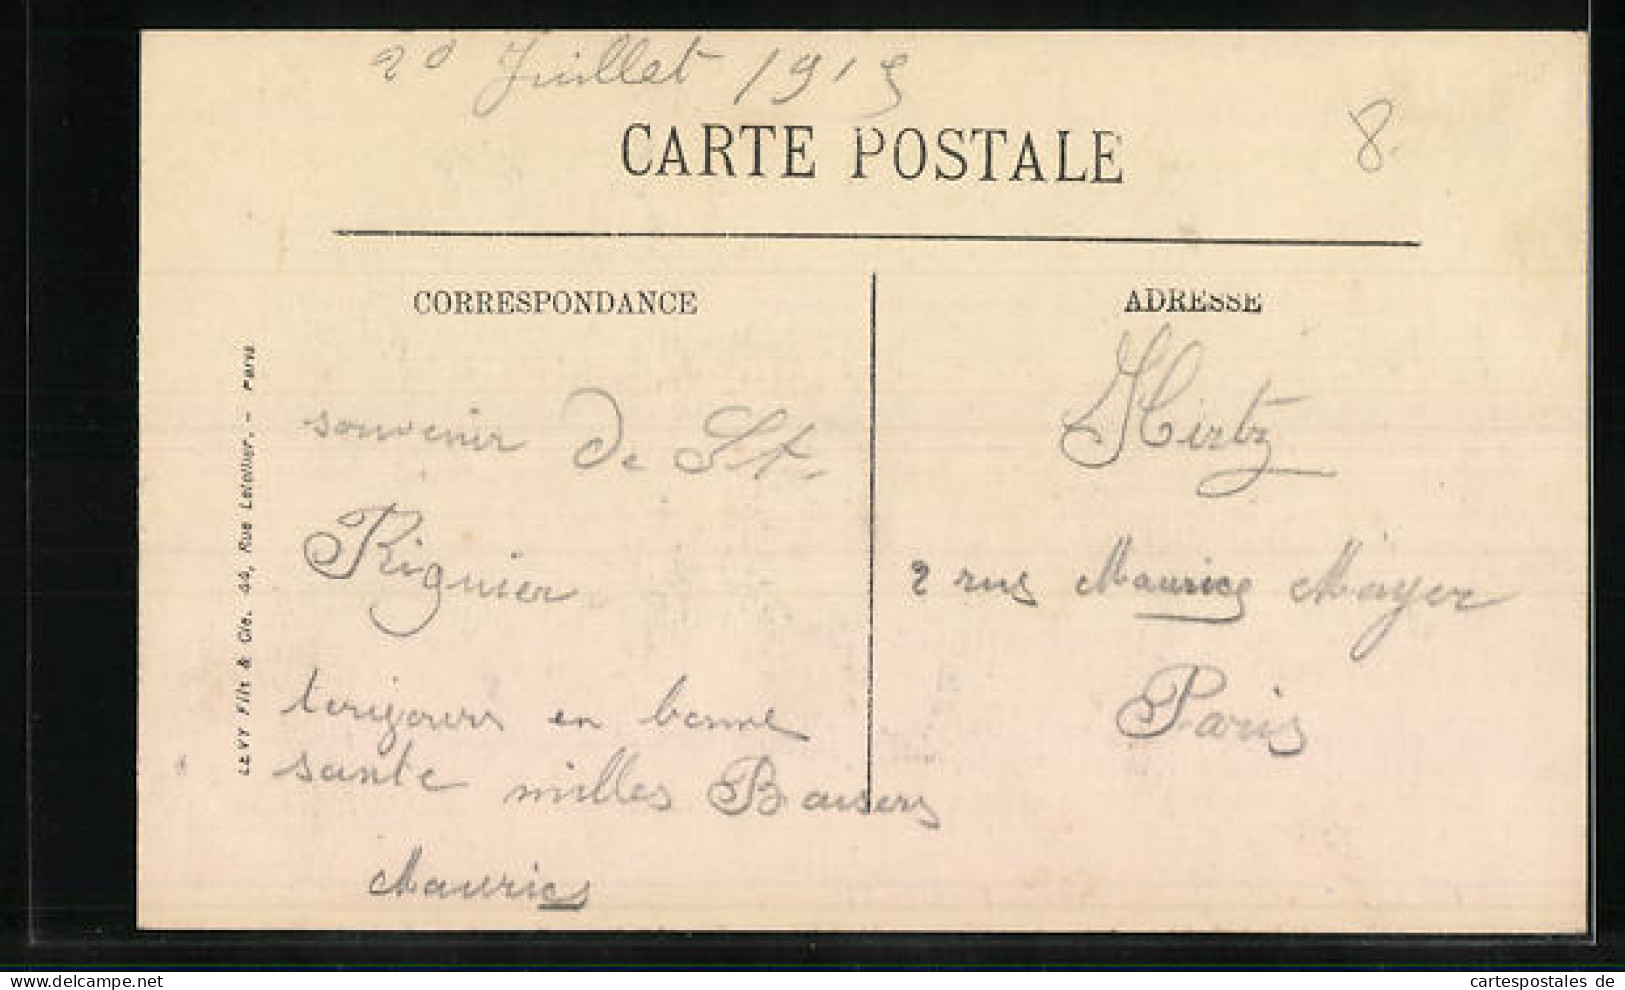 20 Juillet 1915
8.
CARTE POSTALE
CORRESPONDANCE
ADRESSE
LEVY Fils & Cie. 44, Rue Letellier. - Paris
souvenir de St.
Riquier
toujours en bonne
sante milles Baisers
Maurice
Hirtz
2 rue Maurice Mayer
Paris
cartespostales de